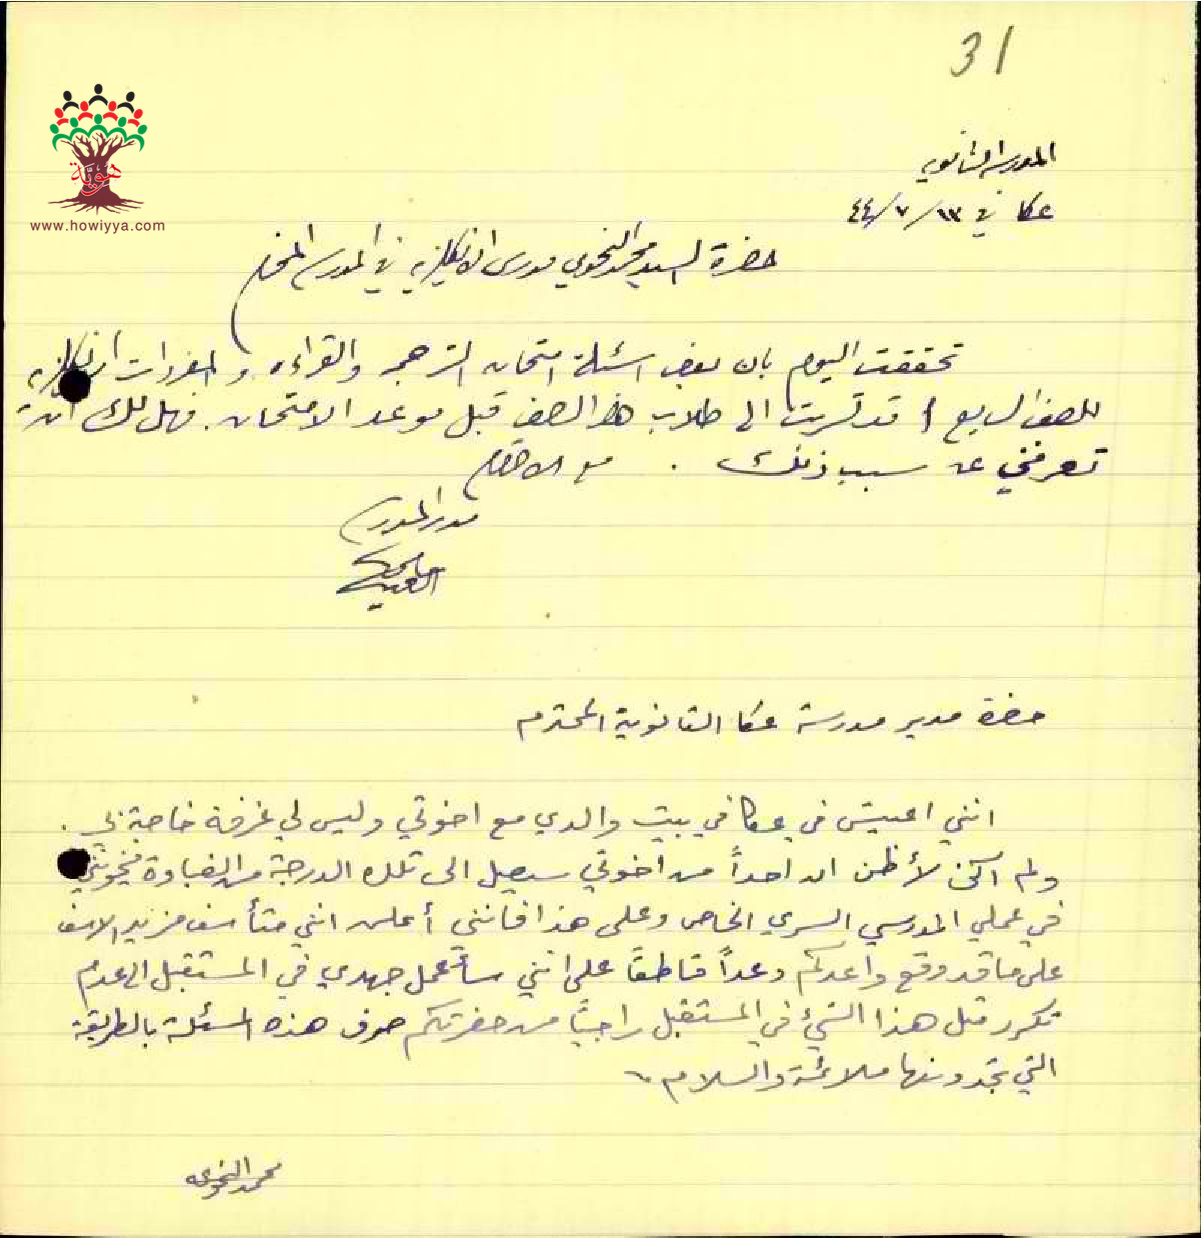 31
هوية
www.howiyya.com
المدرسة الثانوية
عكا في ١٣/ ٧ /٤٤
حضرة السيد محمد النحوي مدرس الانكليزية في المدرسة المحترم
تحققت اليوم بان بعض اسئلة امتحان الترجمة والقراءه والمفردات الانكليزية
للصف السابع أ قد تسربت الى طلاب هذا الصف قبل موعد الامتحان. فهل لك ان
تعرفني عن سبب ذلك . مع الاحترام
مدير المدرسة
حضرة مدير مدرسة عكا الثانوية المحترم
انني اعيش في عكا في بيت والدي مع اخوتي وليس لي غرفة خاصة بي .
ولم اكن لأظن ان احداً من اخوتي سيصل الى تلك الدرجة من الغباوة فيخونني
في عملي المدرسي السري الخاص وعلى هذا فانني أعلن انني متأسف مزيد الاسف
على ما قد وقع واعدكم وعداً قاطعاً على انني سأعمل جهدي في المستقبل الى عدم
تكرر مثل هذا الشيئ في المستقبل راجياً من حضرتكم صرف هذه المسئلة بالطريقة
التي تجدونها ملائمة والسلام
محمد النحوي